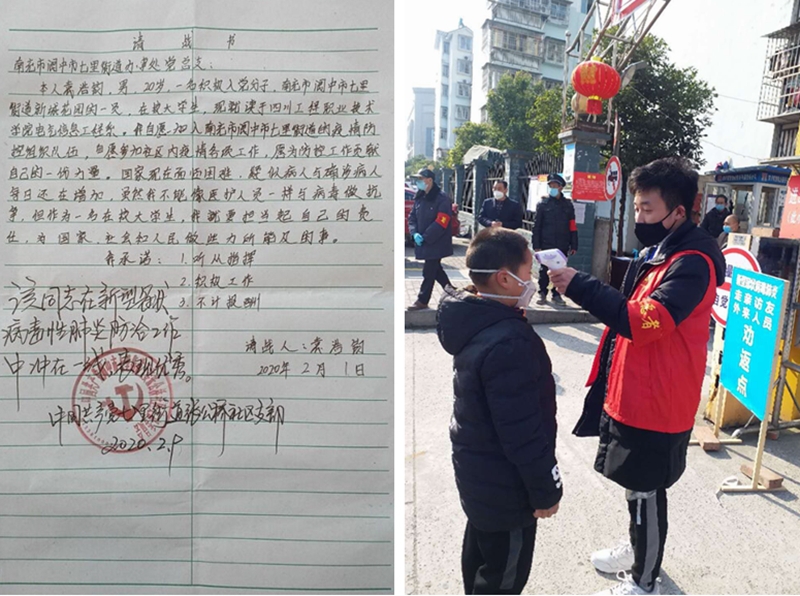 请战书
南充市阆中市七里街道办事处党总支:
本人袁浩钧,男,20岁,一名积极入党分子,南充市阆中市七里
街道新绿花园的一员,在校大学生,现就读于四川工程职业技术
学院电气信息工程系。我自愿加入南充市阆中市七里街道的疫情防
控组织队伍,自愿参加社区内疫情各项工作,愿为防控工作贡献
自己的一份力量。国家现在面临困难,疑似病人与确诊病人
每日还在增加,虽然我不能像医护人员一样与病毒做抗
争,但作为一名在校大学生,我都要担当起自己的责
任,为国家、社会和人民做些力所能及的事。
我承诺:1.听从指挥
2.积极工作
3.不计报酬
该同志在新型冠状
病毒性肺炎防治工作
中冲在一线,表现优秀。
请战人:袁浩钧
2020年2月1日
中国共产党七里街道张公桥社区支部
2020.2.9
新型冠状病毒肺炎
走亲访友
外来人员
劝
返
点